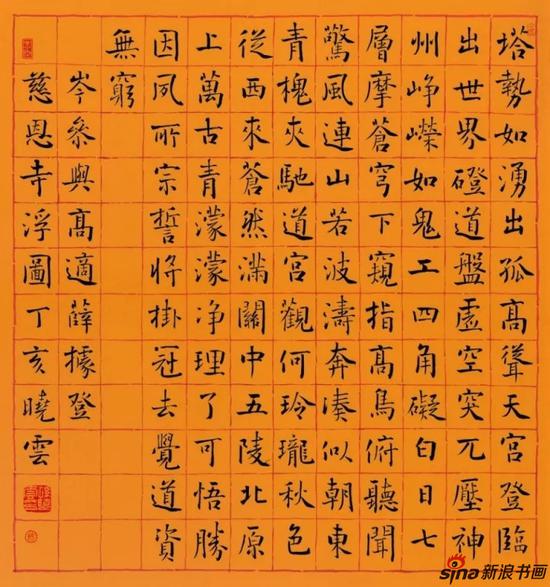 塔勢如湧出孤高聳天宮登臨
出世界磴道盤虛空突兀壓神
州崢嶸如鬼工四角礙白日七
層摩蒼穹下窺指高鳥俯聽聞
驚風連山若波濤奔湊似朝東
青槐夾馳道宮觀何玲瓏秋色
從西來蒼然滿關中五陵北原
上萬古青濛濛净理了可悟勝
因夙所宗誓將掛冠去覺道資
無窮
岑參與高適薛據登
慈恩寺浮圖丁亥曉雲
sina新浪书画